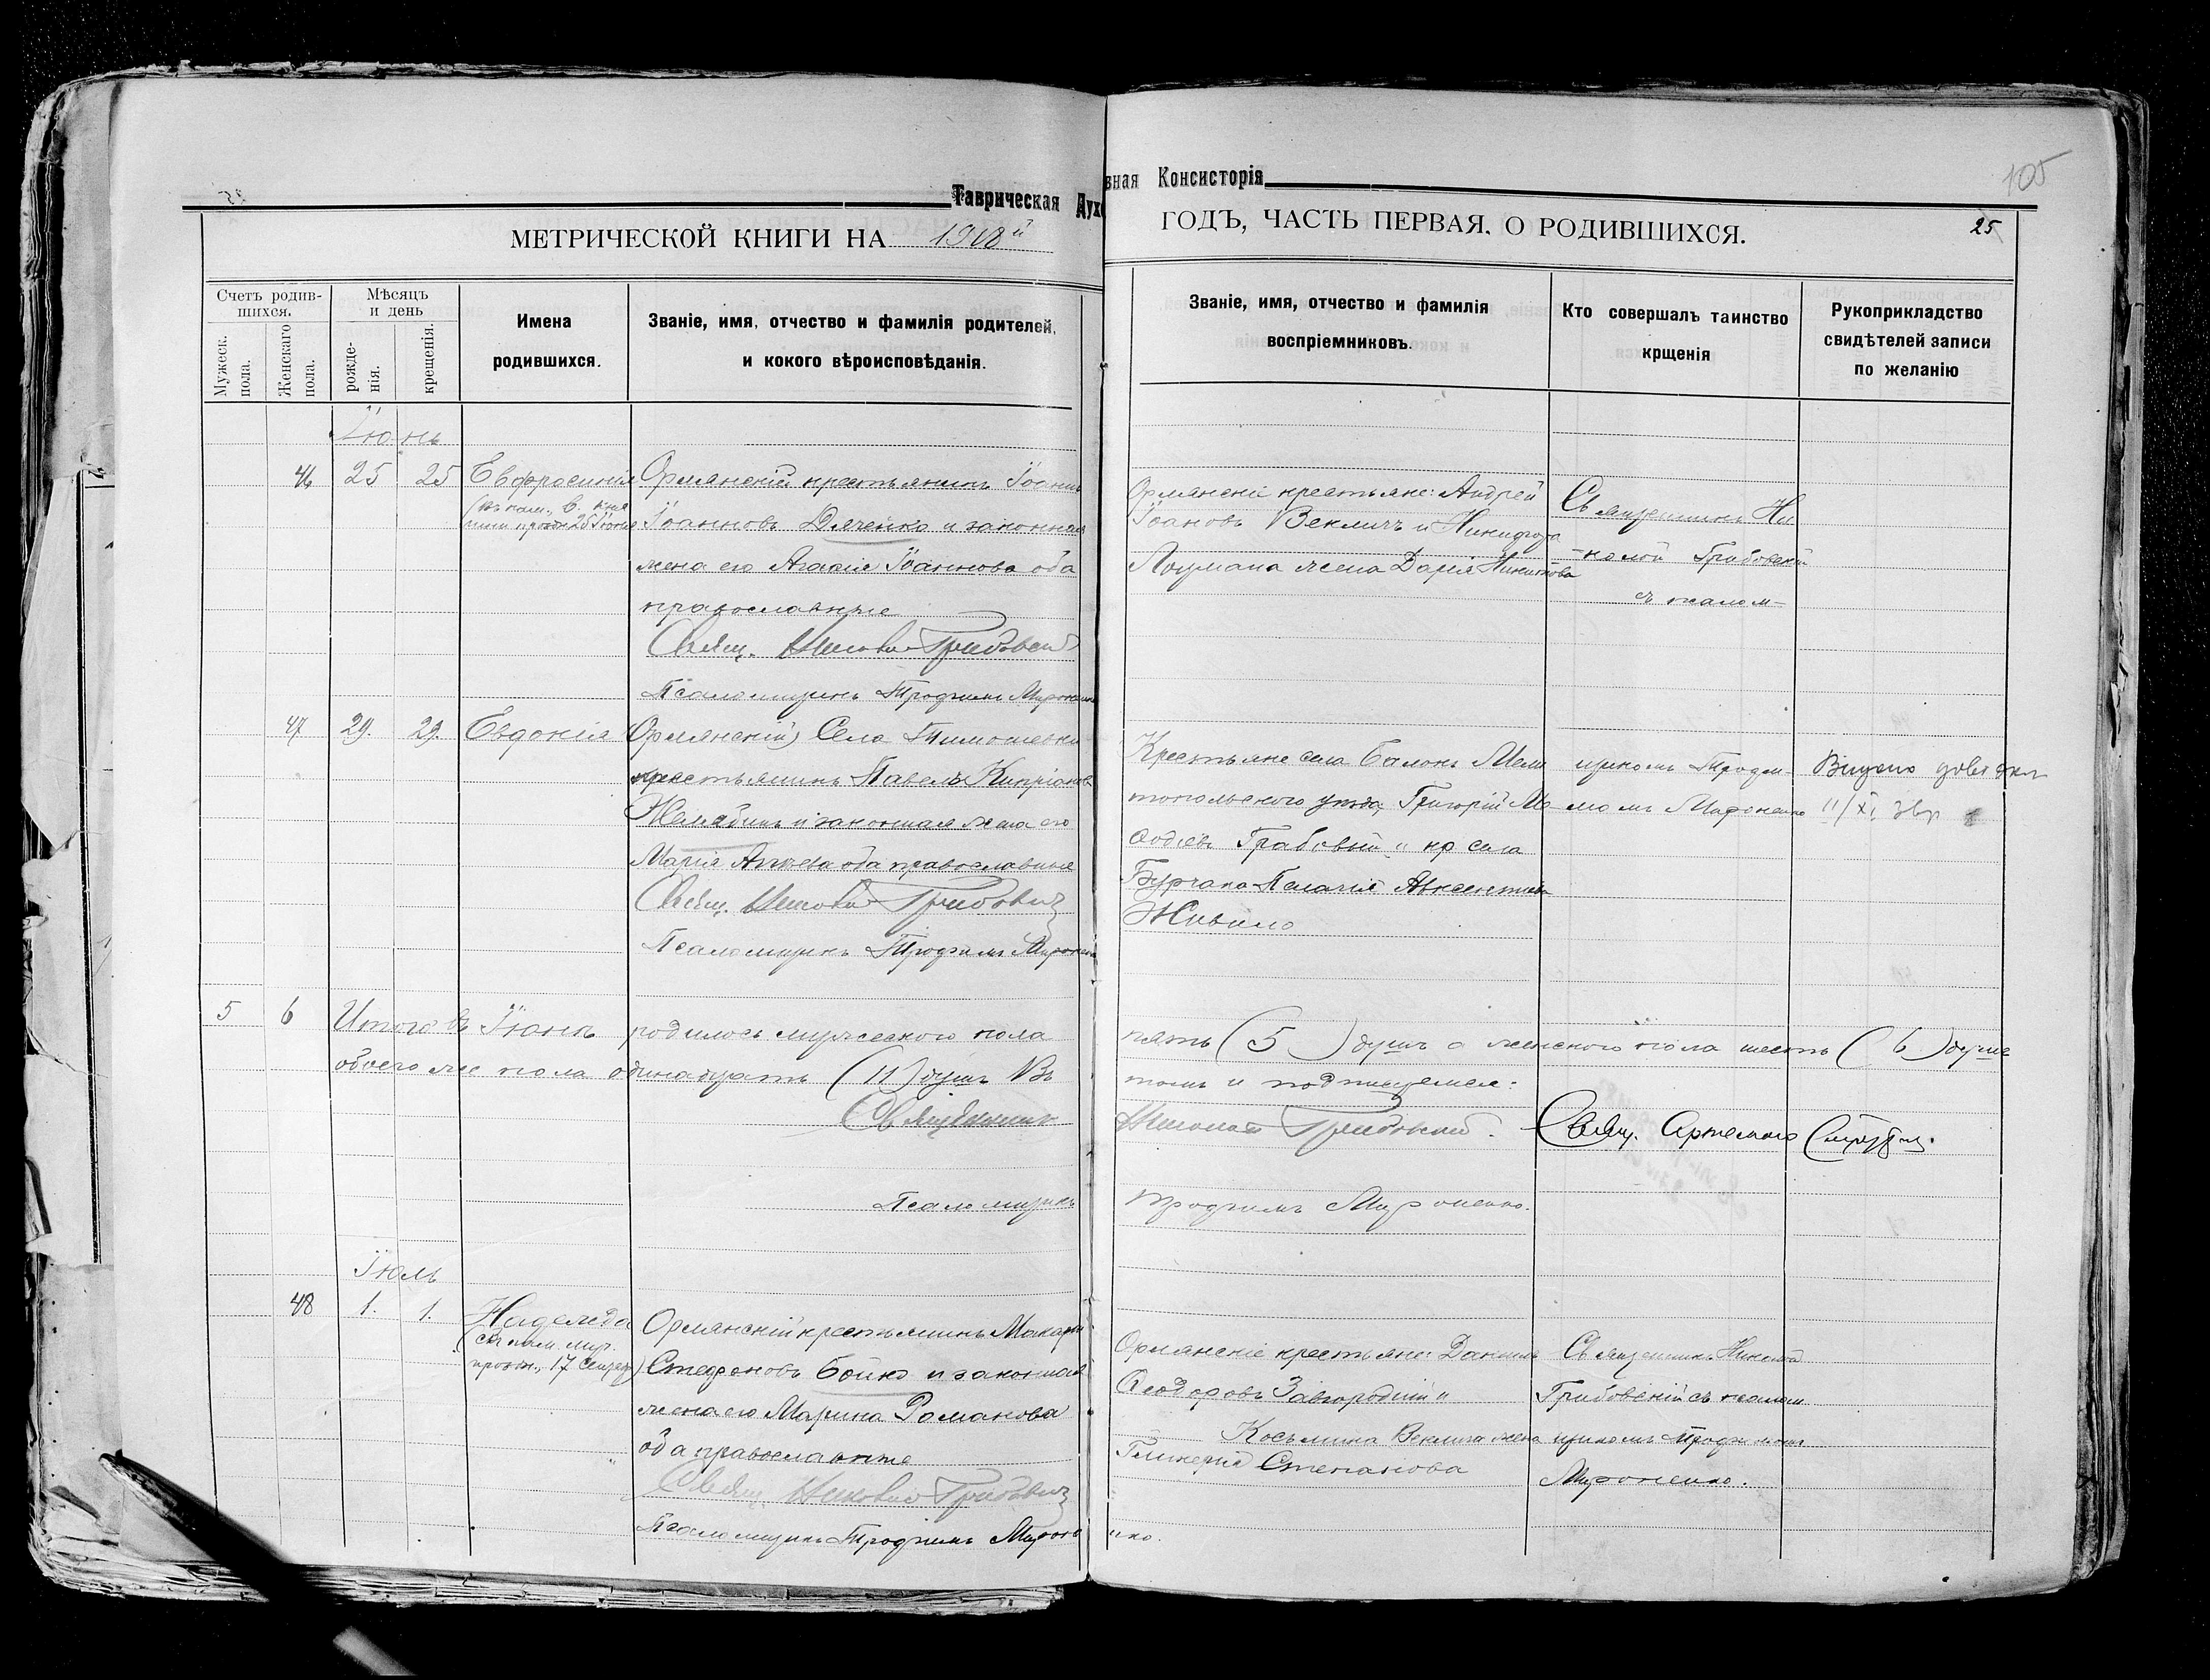 105
Таврическая Духо
вная Консисторія
МЕТРИЧЕСКОЙ КНИГИ НА 1918й
ГОДЪ, ЧАСТЬ ПЕРВАЯ. О РОДИВШИХСЯ.
25
Счетъ родив-
шихся.
Мужеск.
пола.
Женскаго
пола.
Мѣсяцъ
и день
рожде-
нія.
крещенія.
Имена
родившихся.
Званіе, имя, отчество и фамилія родителей,
и кокого вѣроисповѣданія.
Званіе, имя, отчество и фамилія
воспріемниковъ.
Кто совершалъ таинство
крщенія
Рукоприкладство
свидѣтелей записи
по желанію
Іюнь
46 25 25 Евфросинія
25 Іюня
Орлянскій крестьянинъ Іоаннъ
Іоанновъ Дяченко и законная
жена его Агафія Іоаннова оба
православные
Свящ. Николай Грибовскій
Псаломщикъ Трофимъ Мироненко
Орлянскіе крестьяне: Андрей
Іоановъ Векличъ и Никифора
Лоцмана жена Дарія Никитова
Священникъ Ни-
колай Грибовскій
съ псалом-
47 29. 29. Евдокія
Орлянскій) Села Тимошевки
крестьянинъ Павелъ Кипріановъ
и законная жена его
Марія оба православные
Свящ. Николай Грибовскій
Псаломщикъ Трофимъ Мироненко
Крестьяне села Балокъ Мели
топольского уѣзда, Григорій Ме-
фодіевъ Грабовый и кр села
Бурчака Пелагія Авксентіева
Живило
щикомъ Трофи-
момъ Мироненко
11/XI
5 6 Итого въ Іюнѣ родилось мужеского пола
обоего же пола одинадцать (11) душъ Въ
Священникъ
Псаломщикъ
пять (5) душъ а женского пола шесть (6) душъ
томъ и подписуемся:
Николай Грибовскій.
Свящ.
Трофимъ Мироненко.
Іюль
48 1. 1. Надежда
(въ пам. муч.
празн. 17 Сентяб)
Орлянскій крестьянинъ Макарій
Стефановъ Бойко и законная
жена его Марина Романова
оба православные
Свящ. Николай Грибовскій
Псаломщикъ Трофимъ Мироне
нко.
Орлянскіе крестьяне: Даніилъ
Феодоровъ Завгородній и
Косьмина Веклича жена
Гликерія Степанова
Священникъ Николай
Грибовскій съ псалом
щикомъ Трофимомъ
Мироненко.